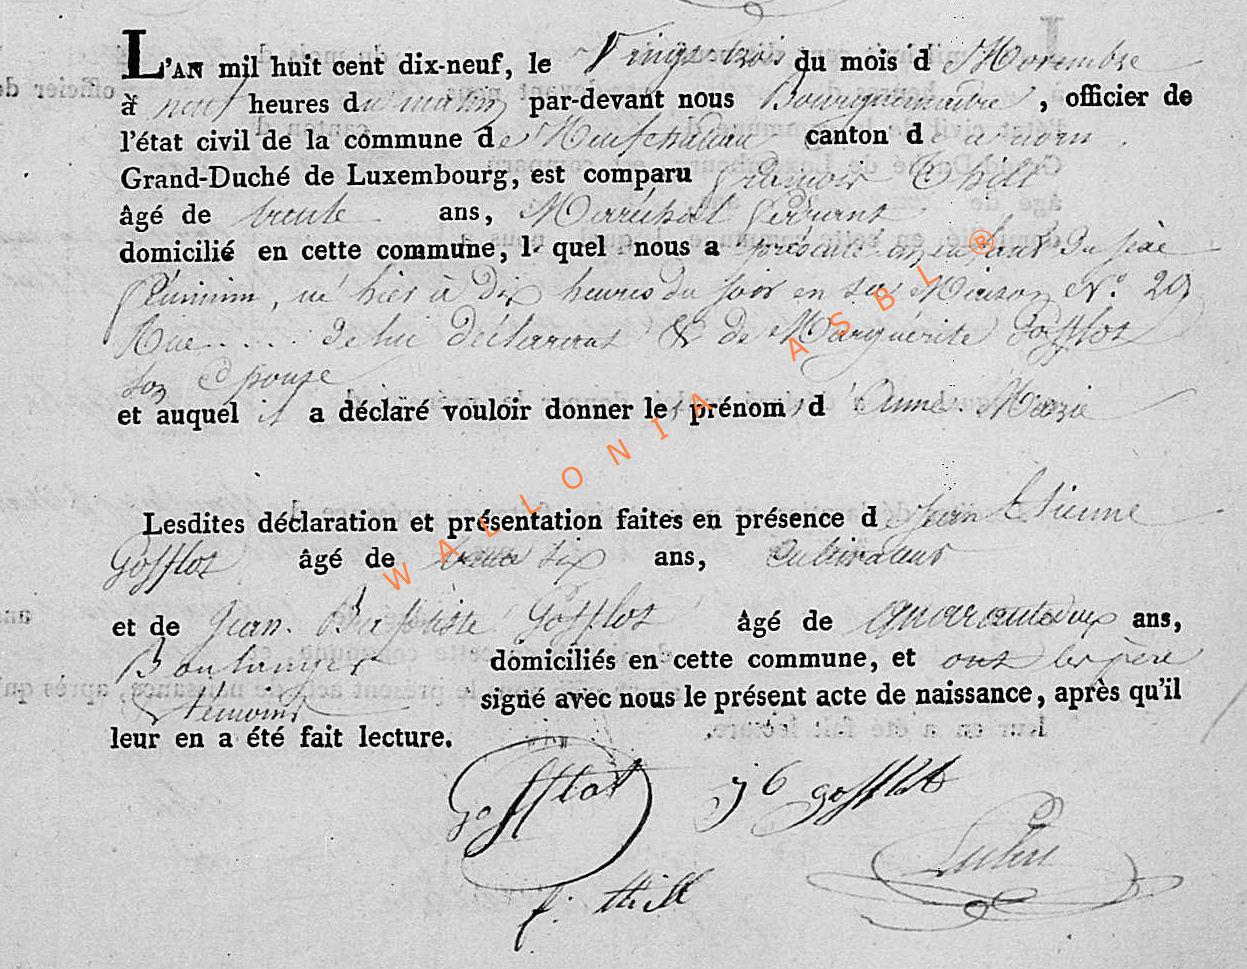 L'AN mil huit cent dix-neuf, le Vingt trois du mois d Novembre
à neuf heures du matin par-devant nous Bourguemaitre, officier de
l'état civil de la commune de Neufchateau canton d
Grand-Duché de Luxembourg, est comparu François Thill
âgé de trente ans, Maréchal ferrant
domicilié en cette commune, lequel nous a présenté un enfant du sexe
féminin, né hier à dix heures du soir en sa Maison N.º 20
Rue..... de lui déclarant & de Marguérite Gofflot
son Epouse
et auquel il a déclaré vouloir donner les prénoms d'Anne. Marie
Lesdites déclaration et présentation faites en présence de Jean Etienne
Gofflot âgé de trente six ans, Cultivateur
et de Jean. Baptiste Gofflot âgé de quarante deux ans,
Boulanger domiciliés en cette commune, et ont les père
& témoins signé avec nous le présent acte de naissance, après qu'il
leur en a été fait lecture.
Gofflot J b gofflot
f. thill
WALLONIA ASBL ®